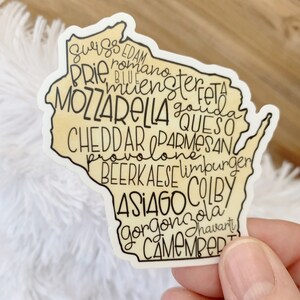 swiss EDAM
romano
BRIE BLUE
muenster FETA
MOZZARELLA gouda
QUESO
CHEDDAR PARMESAN
provolone limburger
BEERKAESE COLBY
ASIAGO
gorgonzola havarti
CAMEMBERT